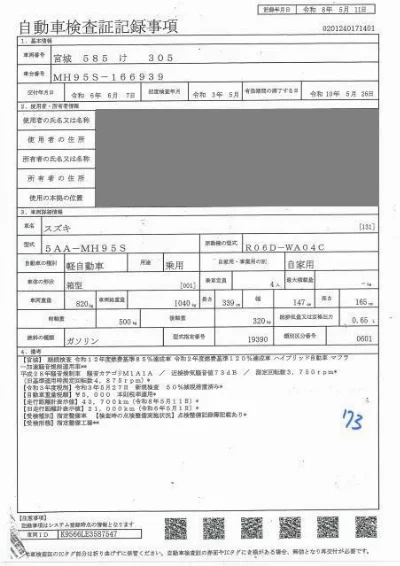 記録年月日 令和 8年 5月 11日
自動車検査証記録事項
0201240171401
1. 基本情報
車両番号 宮城 585 け 305
車台番号 MH95S-166939
交付年月日 令和 6年 6月 7日 初度検査年月 令和 3年 5月 有効期間の満了する日 令和 10年 5月 26日
2. 使用者・所有者情報
使用者の氏名又は名称
使用者の住所
所有者の氏名又は名称
所有者の住所
使用の本拠の位置
3. 車両詳細情報
車名 スズキ [131]
型式 5AA-MH95S 原動機の型式 R06D-WA04C
自動車の種別 軽自動車 用途 乗用 自家用・事業用の別 自家用
車体の形状 箱型 [001] 乗車定員 4人 最大積載量 -kg
車両重量 820kg 車両総重量 1040kg 長さ 339cm 幅 147cm 高さ 165cm
前軸重 500kg 後軸重 320kg 総排気量又は定格出力 0.65
燃料の種類 ガソリン 型式指定番号 19390 類別区分番号 0601
4. 備考
【宮城】 継続検査 令和12年度燃費基準85%達成車 令和2年度燃費基準120%達成車 ハイブリッド自動車 マフラ
ー加速騒音規制適用車*
平成28年騒音規制車 騒音カテゴリM1A1A / 近接排気騒音値73dB / 測定回転数3,750rpm*
(旧基準適用時測定回転数4,875rpm)*
【令和3年度税制】令和3年5月27日 新規検査 50%減税措置済み*
【自動車重量税額】¥5,000 本則税率適用*
【走行距離計表示値】43,700km (令和8年5月11日)*
【旧走行距離計表示値】21,000km (令和6年6月7日)*
【受検種別】指定整備車 【検査時の点検整備実施状況】点検整備記録簿記載あり*
【受検形態】指定整備工場**
173
【注意事項】
車両情報はシステム登録時点の情報となります
車両ID K9566LE3587547
車検査証のICタグ部分は折り曲げずに保管ください。自動車検査証の券面やICタグに余儀がある場合、無効となり再交付が必要です。